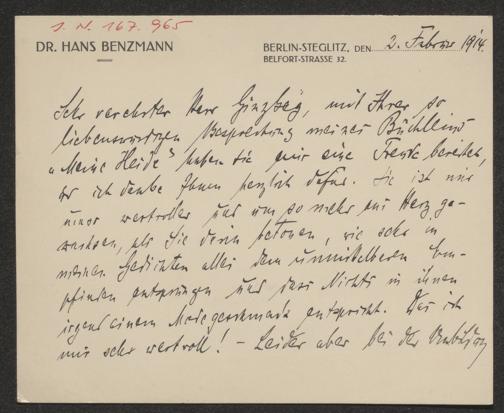 I. N. 167.965
DR. HANS BENZMANN
BERLIN-STEGLITZ, DEN 2. Februar 1914.
BELFORT-STRASSE 32.
Sehr verehrter Herr Ginzkey, mit Ihrer so
liebenswürdigen Besprechung meines Büchleins
„Meine Heide“ haben Sie mir eine Freude bereitet,
ich danke Ihnen herzlich dafür. Sie ist mir
umso wertvoller und um so mehr ans Herz ge-
wachsen, als Sie darin betonen, wie sehr in
meinen Gedichten alles dem unmittelbaren Em-
pfinden entsprungen und dass Nichts in ihnen
irgend einem Modegeschmack entspricht. Das ist
mir sehr wertvoll! – Leider aber bei der